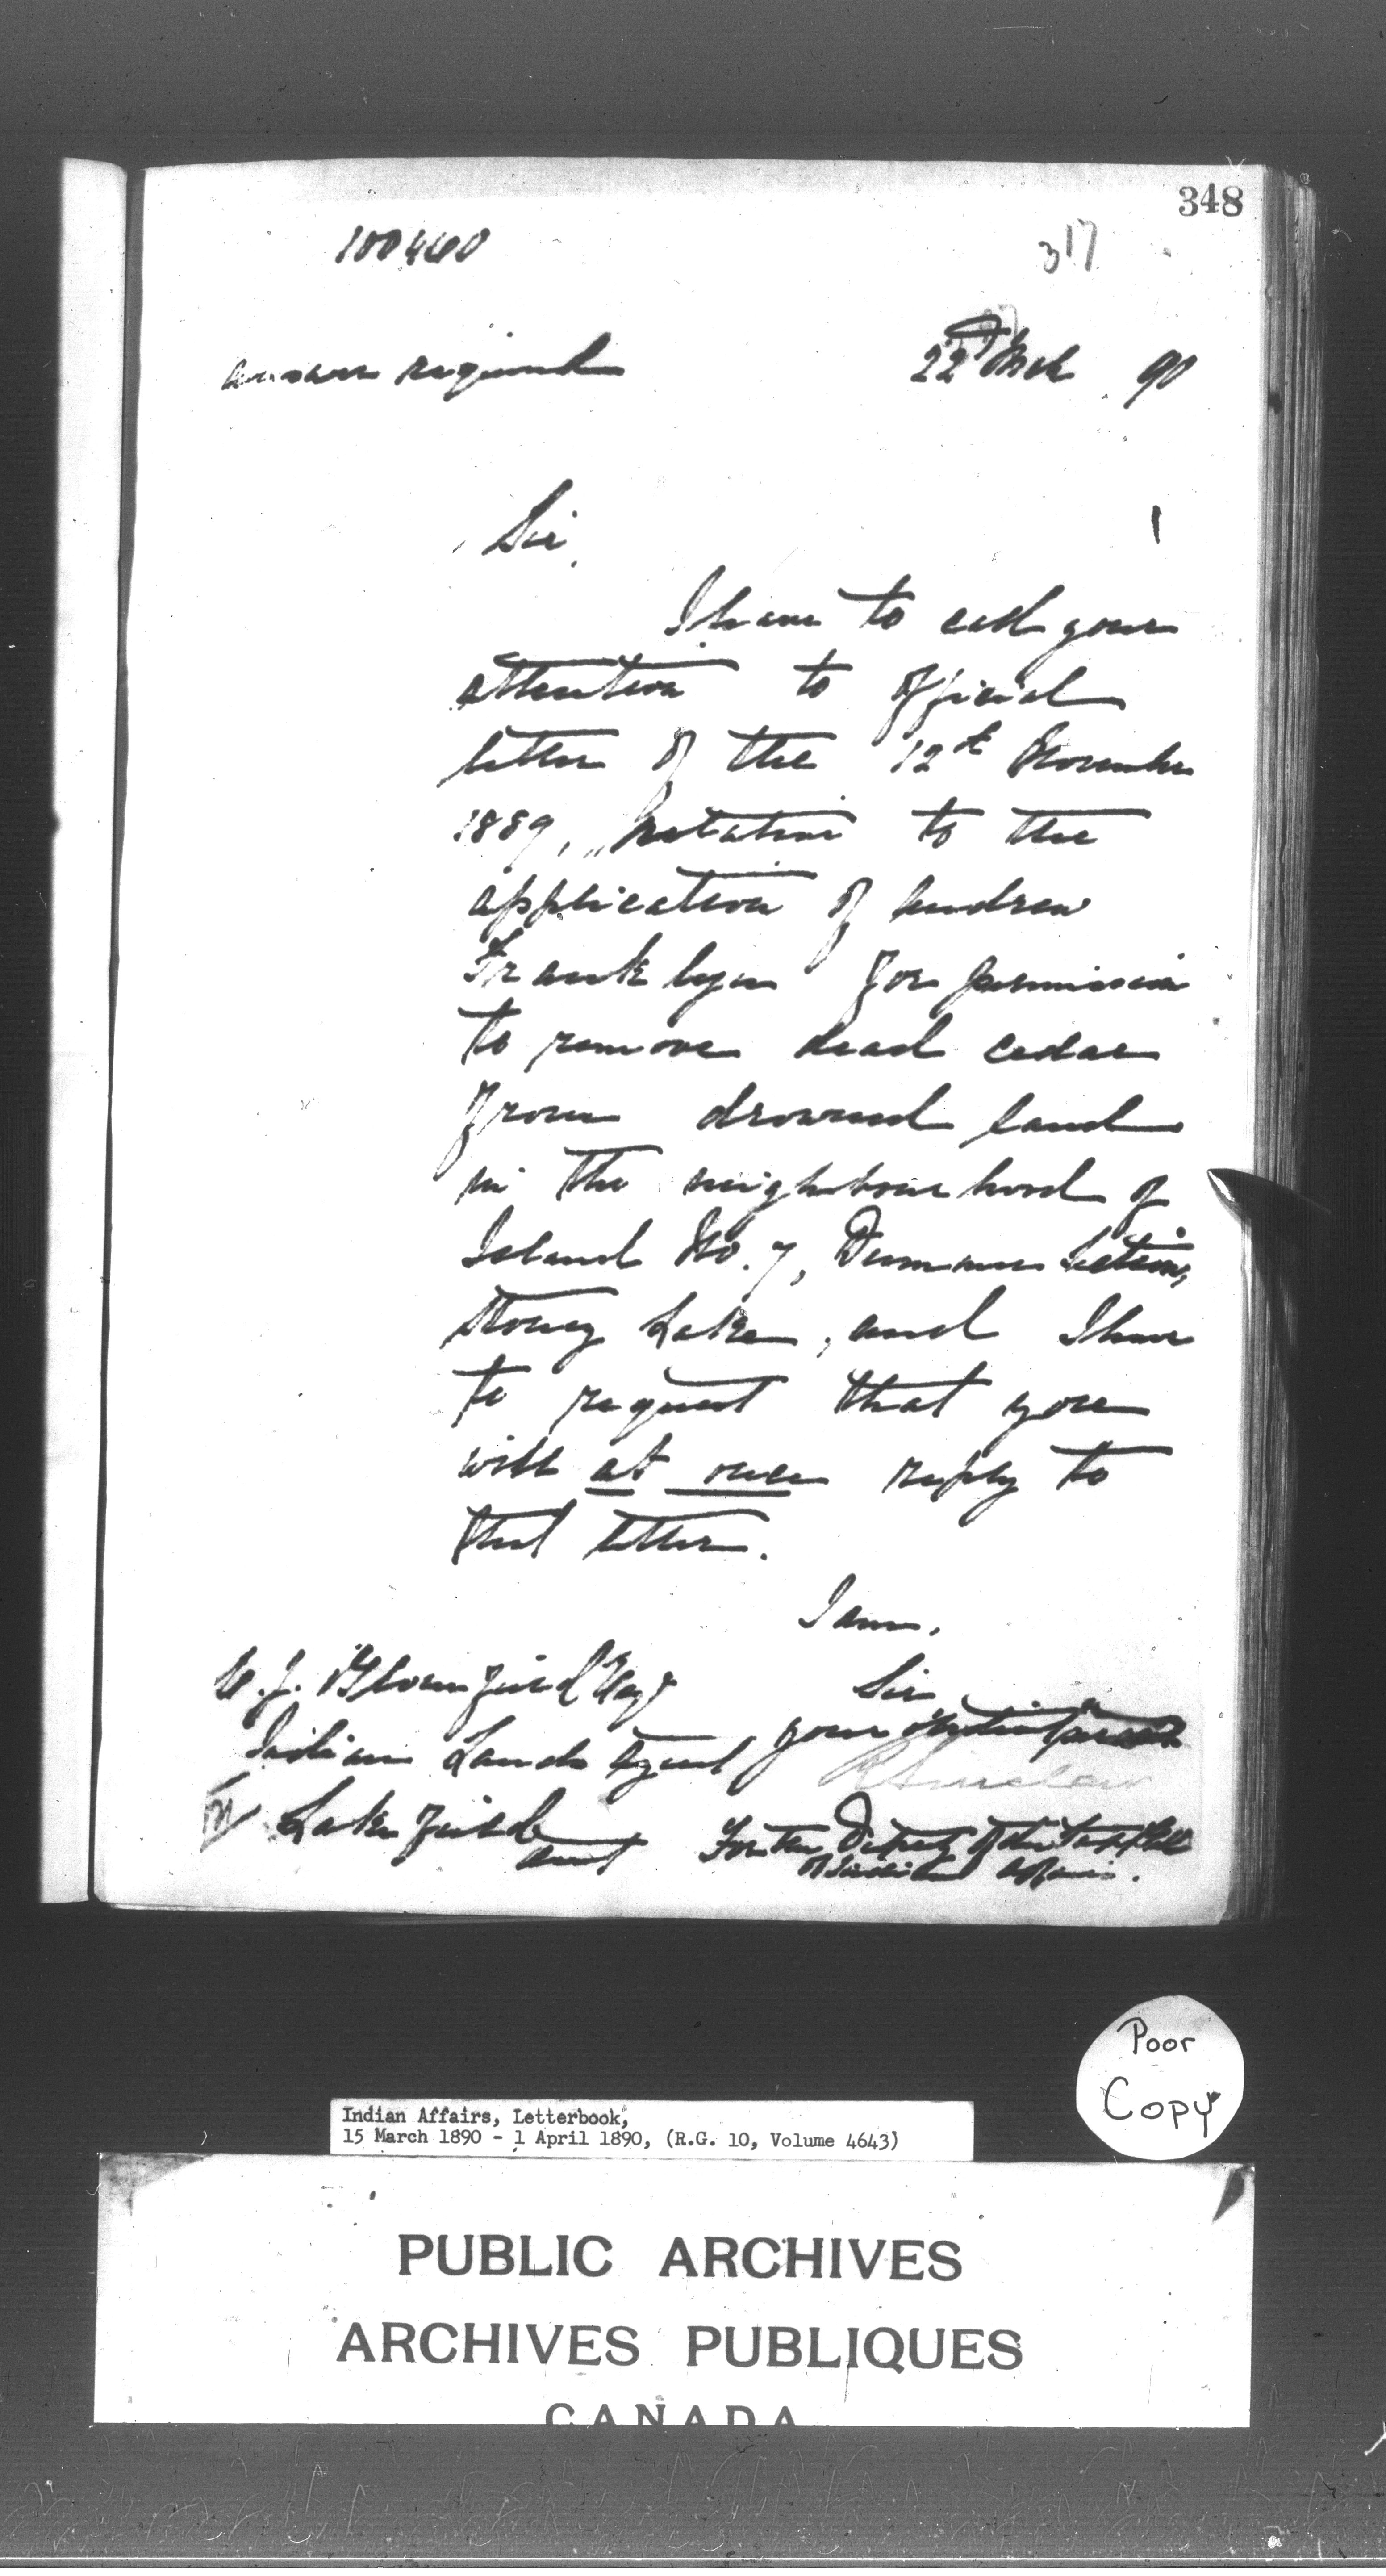 348
317
100460
answer required 22nd Mch 90
Sir,
I have to call your
attention to official
letter of the 12th November
1889, relative to the
application of Andrew
Franklyn for permission
to remove dead cedar
from drowned land
in the neighbourhood of
Island No. 7, Dummer Section,
Stoney Lake, and I have
to request that you
will at once reply to
that letter.
I am,
Sir
your obedient servant
R Sinclair
For the Deputy of the Supt Genl
of Indian Affairs.
J. Bloomfield Esqr
Indian Lands Agent
Lakefield
Ont
Poor
Copy
Indian Affairs, Letterbook,
15 March 1890 - 1 April 1890, (R.G. 10, Volume 4643)
PUBLIC ARCHIVES
ARCHIVES PUBLIQUES
CANADA